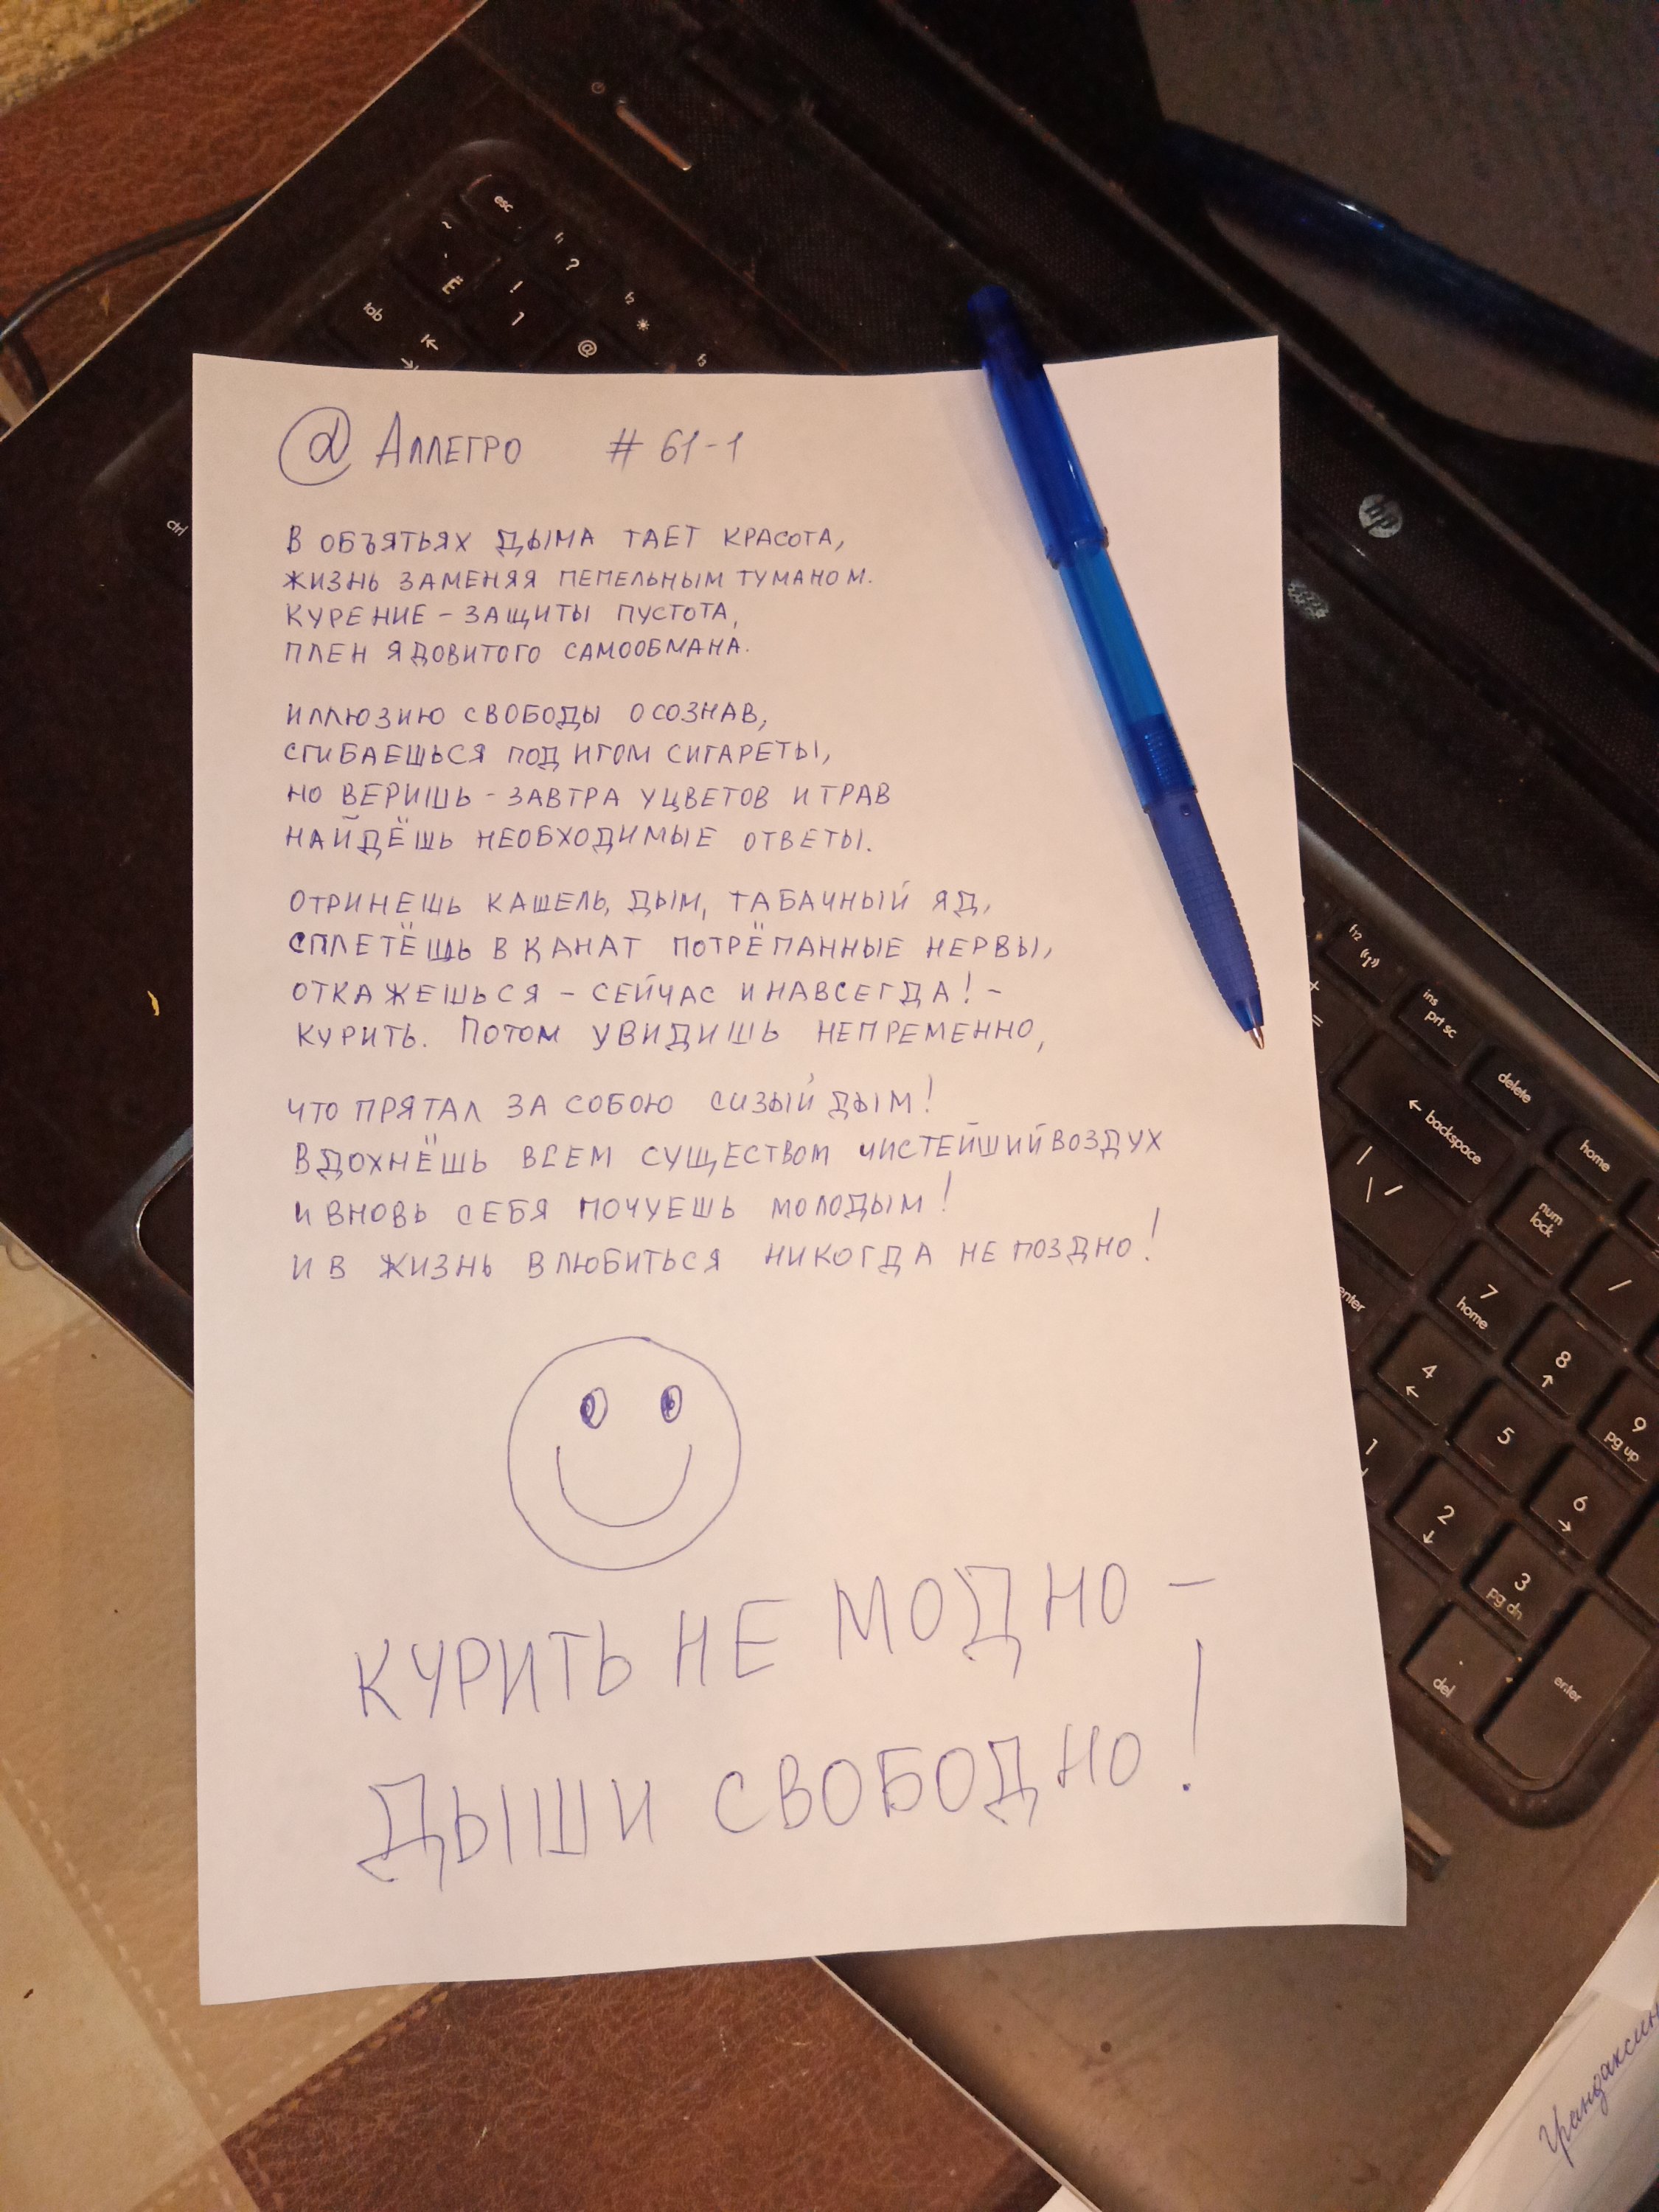 @ Аллегро # 61-1
В ОБЪЯТЬЯХ ДЫМА ТАЕТ КРАСОТА,
ЖИЗНЬ ЗАМЕНЯЯ ПЕПЕЛЬНЫМ ТУМАНОМ.
КУРЕНИЕ – ЗАЩИТЫ ПУСТОТА,
ПЛЕН ЯДОВИТОГО САМООБМАНА.
ИЛЛЮЗИЮ СВОБОДЫ ОСОЗНАВ,
СГИБАЕШЬСЯ ПОД ИГОМ СИГАРЕТЫ,
НО ВЕРИШЬ - ЗАВТРА У ЦВЕТОВ И ТРАВ
НАЙДЁШЬ НЕОБХОДИМЫЕ ОТВЕТЫ.
ОТРИНЕШЬ КАШЕЛЬ, ДЫМ, ТАБАЧНЫЙ ЯД,
СПЛЕТЁШЬ В КАНАТ ПОТРЁПАННЫЕ НЕРВЫ,
ОТКАЖЕШЬСЯ – СЕЙЧАС И НАВСЕГДА! –
КУРИТЬ. ПОТОМ УВИДИШЬ НЕПРЕМЕННО,
ЧТО ПРЯТАЛ ЗА СОБОЮ СИЗЫЙ ДЫМ!
ВДОХНЁШЬ ВСЕМ СУЩЕСТВОМ ЧИСТЕЙШИЙ ВОЗДУХ
И ВНОВЬ СЕБЯ ПОЧУЕШЬ МОЛОДЫМ!
И В ЖИЗНЬ ВЛЮБИТЬСЯ НИКОГДА НЕ ПОЗДНО!
КУРИТЬ НЕ МОДНО –
ДЫШИ СВОБОДНО!
esc
f1
?
f2
f3
tab
~
Ё
!
1
@
ctrl
hp
f12
ins
prt sc
delete
home
+
=
← backspace
|
\ /
num
lock
/
enter
7
home
8
↑
9
pg up
4
←
5
6
→
1
2
↓
3
pg dn
.
del
enter
Грандаксин